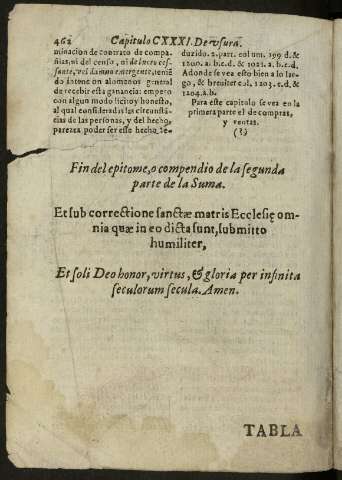 462 Capitulo CXXXI. De vsura.
minacion de contrato de compa-
ñias, ni del censo, ni de lucro ces-
sante, vel damno emergente, teniē
do intento alomenos general
de recebir esta ganancia: empero
con algun modo licito y honesto,
al qual consideradas las circunstā
cias de las personas, y del hecho,
parezca poder ser este hecho re-
duzido. 2. part. col. uni. 199. d. &
1200. a. b. c. d. & 1022. a. b. c. d.
A donde se vea esto bien a lo lar-
go, & breuiter col. 1203. c. d. &
1204. a. b.
Para este capitulo se vea en la
primera parte el de compras,
y ventas.
(?)
Fin del epitome, o compendio de la segunda
parte de la Suma.
Et sub correctione sanctæ matris Ecclesię om-
nia quæ in eo dicta sunt, submitto
humiliter,
Et soli Deo honor, virtus, & gloria per infinita
seculorum secula. Amen.
TABLA